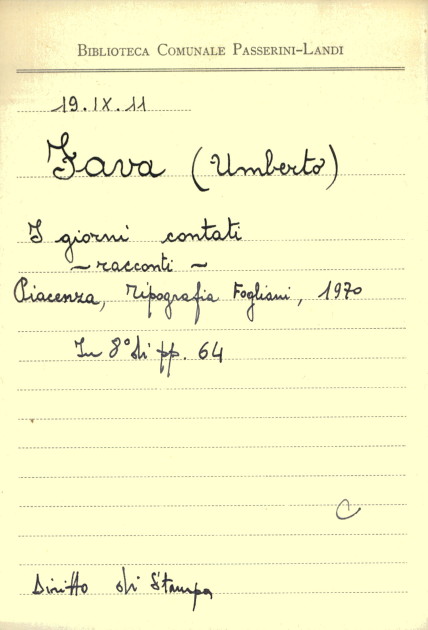 BIBLIOTECA COMUNALE PASSERINI-LANDI
19.IX.11
Fava (Umberto)
I giorni contati
~ racconti ~
Piacenza, Tipografia Fogliani, 1970
In 8° di pp. 64
C
Diritto di Stampa